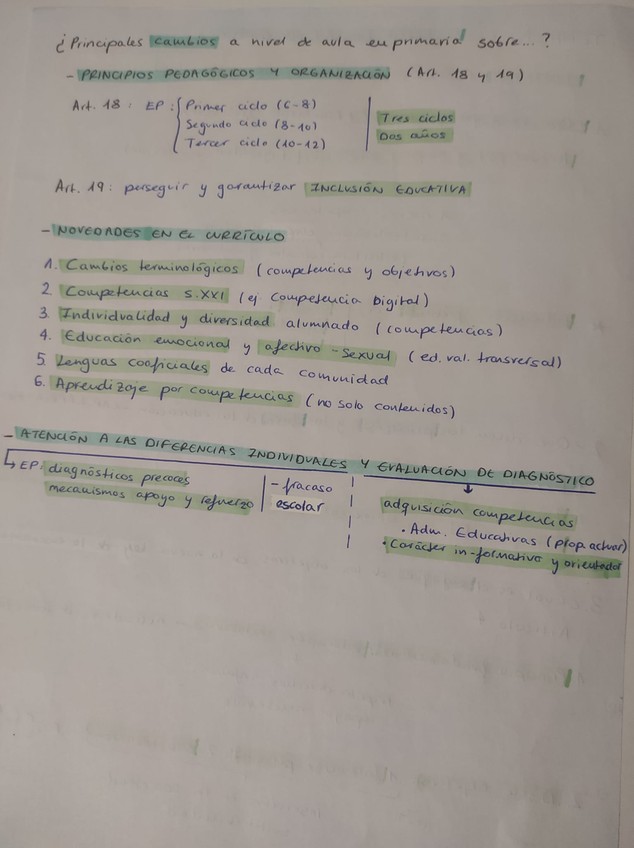 ¿Principales cambios a nivel de aula en primaria sobre...?
- PRINCIPIOS PEDAGÓGICOS Y ORGANIZACIÓN (Art. 18 y 19)
Art. 18: EP: Primer ciclo (6-8)
Segundo ciclo (8-10)
Tercer ciclo (10-12)
Tres ciclos
Dos años
Art. 19: perseguir y garantizar INCLUSIÓN EDUCATIVA
- NOVEDADES EN EL CURRÍCULO
1. Cambios terminológicos (competencias y objetivos)
2 Competencias S.XXI (ej Competencia Digital)
3. Individualidad y diversidad alumnado (competencias)
4. Educación emocional y afectivo-sexual (ed. val. transversal)
5. Lenguas cooficiales de cada comunidad
6. Aprendizaje por competencias (no solo contenidos)
- ATENCIÓN A LAS DIFERENCIAS INDIVIDUALES Y EVALUACIÓN DE DIAGNÓSTICO
↳ EP: diagnósticos precoces
mecanismos apoyo y refuerzo
- fracaso
escolar
adquisición competencias
• Adm. Educativas (prop. actuar)
• Carácter in-formativo y orientador